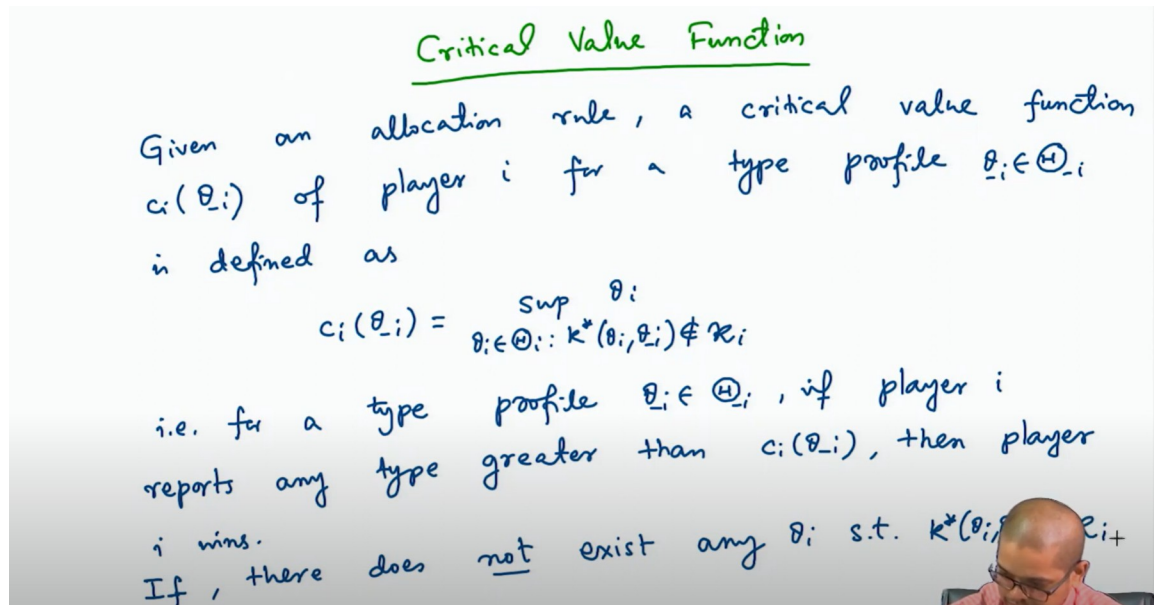 Critical Value Function
Given an allocation rule, a critical value function
cᵢ(θ̲₋ᵢ) of player i for a type profile θ̲₋ᵢ ∈ Θ₋ᵢ
is defined as
cᵢ(θ̲₋ᵢ) = sup θᵢ
θᵢ ∈ Θᵢ : k*(θᵢ, θ̲₋ᵢ) ∉ 𝒦ᵢ
i.e. for a type profile θ̲₋ᵢ ∈ Θ₋ᵢ, if player i
reports any type greater than cᵢ(θ̲₋ᵢ), then player
i wins.
If, there does not exist any θᵢ s.t. k*(θᵢ,